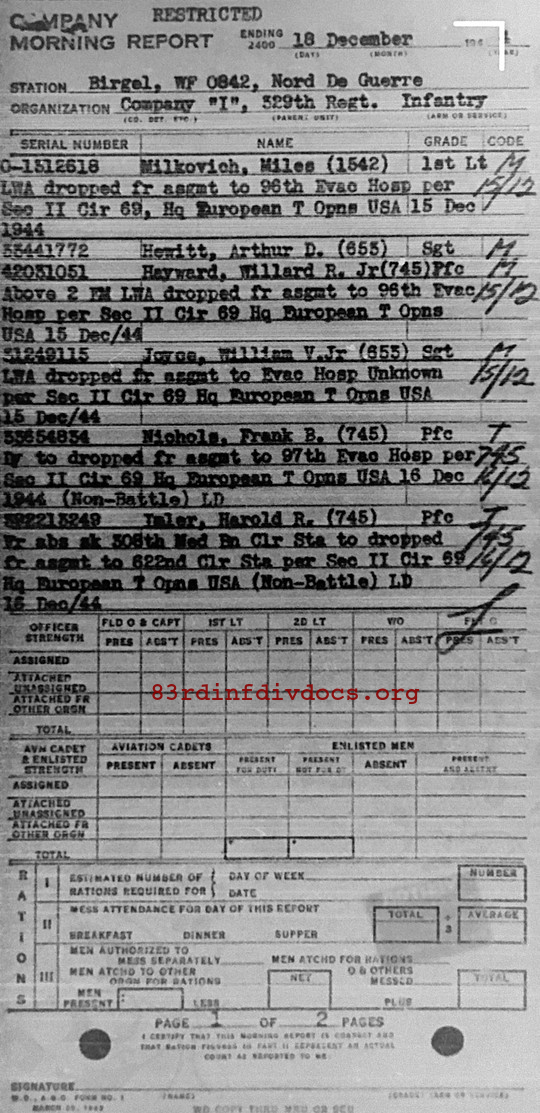 COMPANY RESTRICTED
MORNING REPORT ENDING 2400 18 December 194
(DAY) (MONTH) (YEAR)
STATION Birgel, WF 0842, Nord De Guerre
ORGANIZATION Company "I", 329th Regt. Infantry
(CO. DET. ETC.) (PARENT UNIT) (ARM OR SERVICE)
SERIAL NUMBER NAME GRADE CODE
O-1312618 Milkovich, Miles (1542) 1st Lt M
LWA dropped fr asgmt to 96th Evac Hosp per 15/12
Sec II Cir 69, Hq European T Opns USA 15 Dec
1944
33441772 Hewitt, Arthur D. (653) Sgt M
42031051 Hayward, Willard R. Jr(745)Pfc M
Above 2 EM LWA dropped fr asgmt to 96th Evac 15/12
Hosp per Sec II Cir 69 Hq European T Opns
USA 15 Dec/44
31249115 Joyce, William V.Jr (653) Sgt M
LWA dropped fr asgmt to Evac Hosp Unknown 15/12
per Sec II Cir 69 Hq European T Opns USA
15 Dec/44
33654834 Nichols, Frank B. (745) Pfc
Dy to dropped fr asgmt to 97th Evac Hosp per 745
Sec II Cir 69 Hq European T Opns USA 16 Dec 16/12
1944 (Non-Battle) LD
Imler, Harold R. (745) Pfc
Fr abs sk 308th Med Bn Clr Sta to dropped 745
fr asgmt to 622nd Clr Sta per Sec II Cir 69 16/12
Hq European T Opns USA (Non-Battle) LD
16 Dec/44
OFFICER STRENGTH FLD O & CAPT 1ST LT 2D LT W/O FLT O
PRES ABS'T PRES ABS'T PRES ABS'T PRES ABS'T PRES ABS'T
ASSIGNED
ATTACHED UNASSIGNED
ATTACHED FR OTHER ORGN
TOTAL
83rdinfdivdocs.org
AVN CADET & ENLISTED STRENGTH AVIATION CADETS ENLISTED MEN
PRESENT ABSENT PRESENT FOR DUTY PRESENT NOT FOR DY ABSENT PRESENT AND ABSENT
ASSIGNED
ATTACHED UNASSIGNED
ATTACHED FR OTHER ORGN
TOTAL
RATIONS
I ESTIMATED NUMBER OF RATIONS REQUIRED FOR { DAY OF WEEK NUMBER
DATE
II MESS ATTENDANCE FOR DAY OF THIS REPORT TOTAL ÷ 3 AVERAGE
BREAKFAST DINNER SUPPER
III MEN AUTHORIZED TO MESS SEPARATELY MEN ATCHD FOR RATIONS
MEN ATCHD TO OTHER ORGN FOR RATIONS NET O & OTHERS MESSED TOTAL
MEN PRESENT LESS PLUS
PAGE 1 OF 2 PAGES
I CERTIFY THAT THIS MORNING REPORT IS CORRECT AND
THAT RATION FIGURES IN PART II REPRESENT AN ACTUAL
COUNT AS REPORTED TO ME.
SIGNATURE
W.D., A.G.O. FORM NO. 1 (NAME) (GRADE) (ARM OR SERVICE)
MARCH 20, 1942